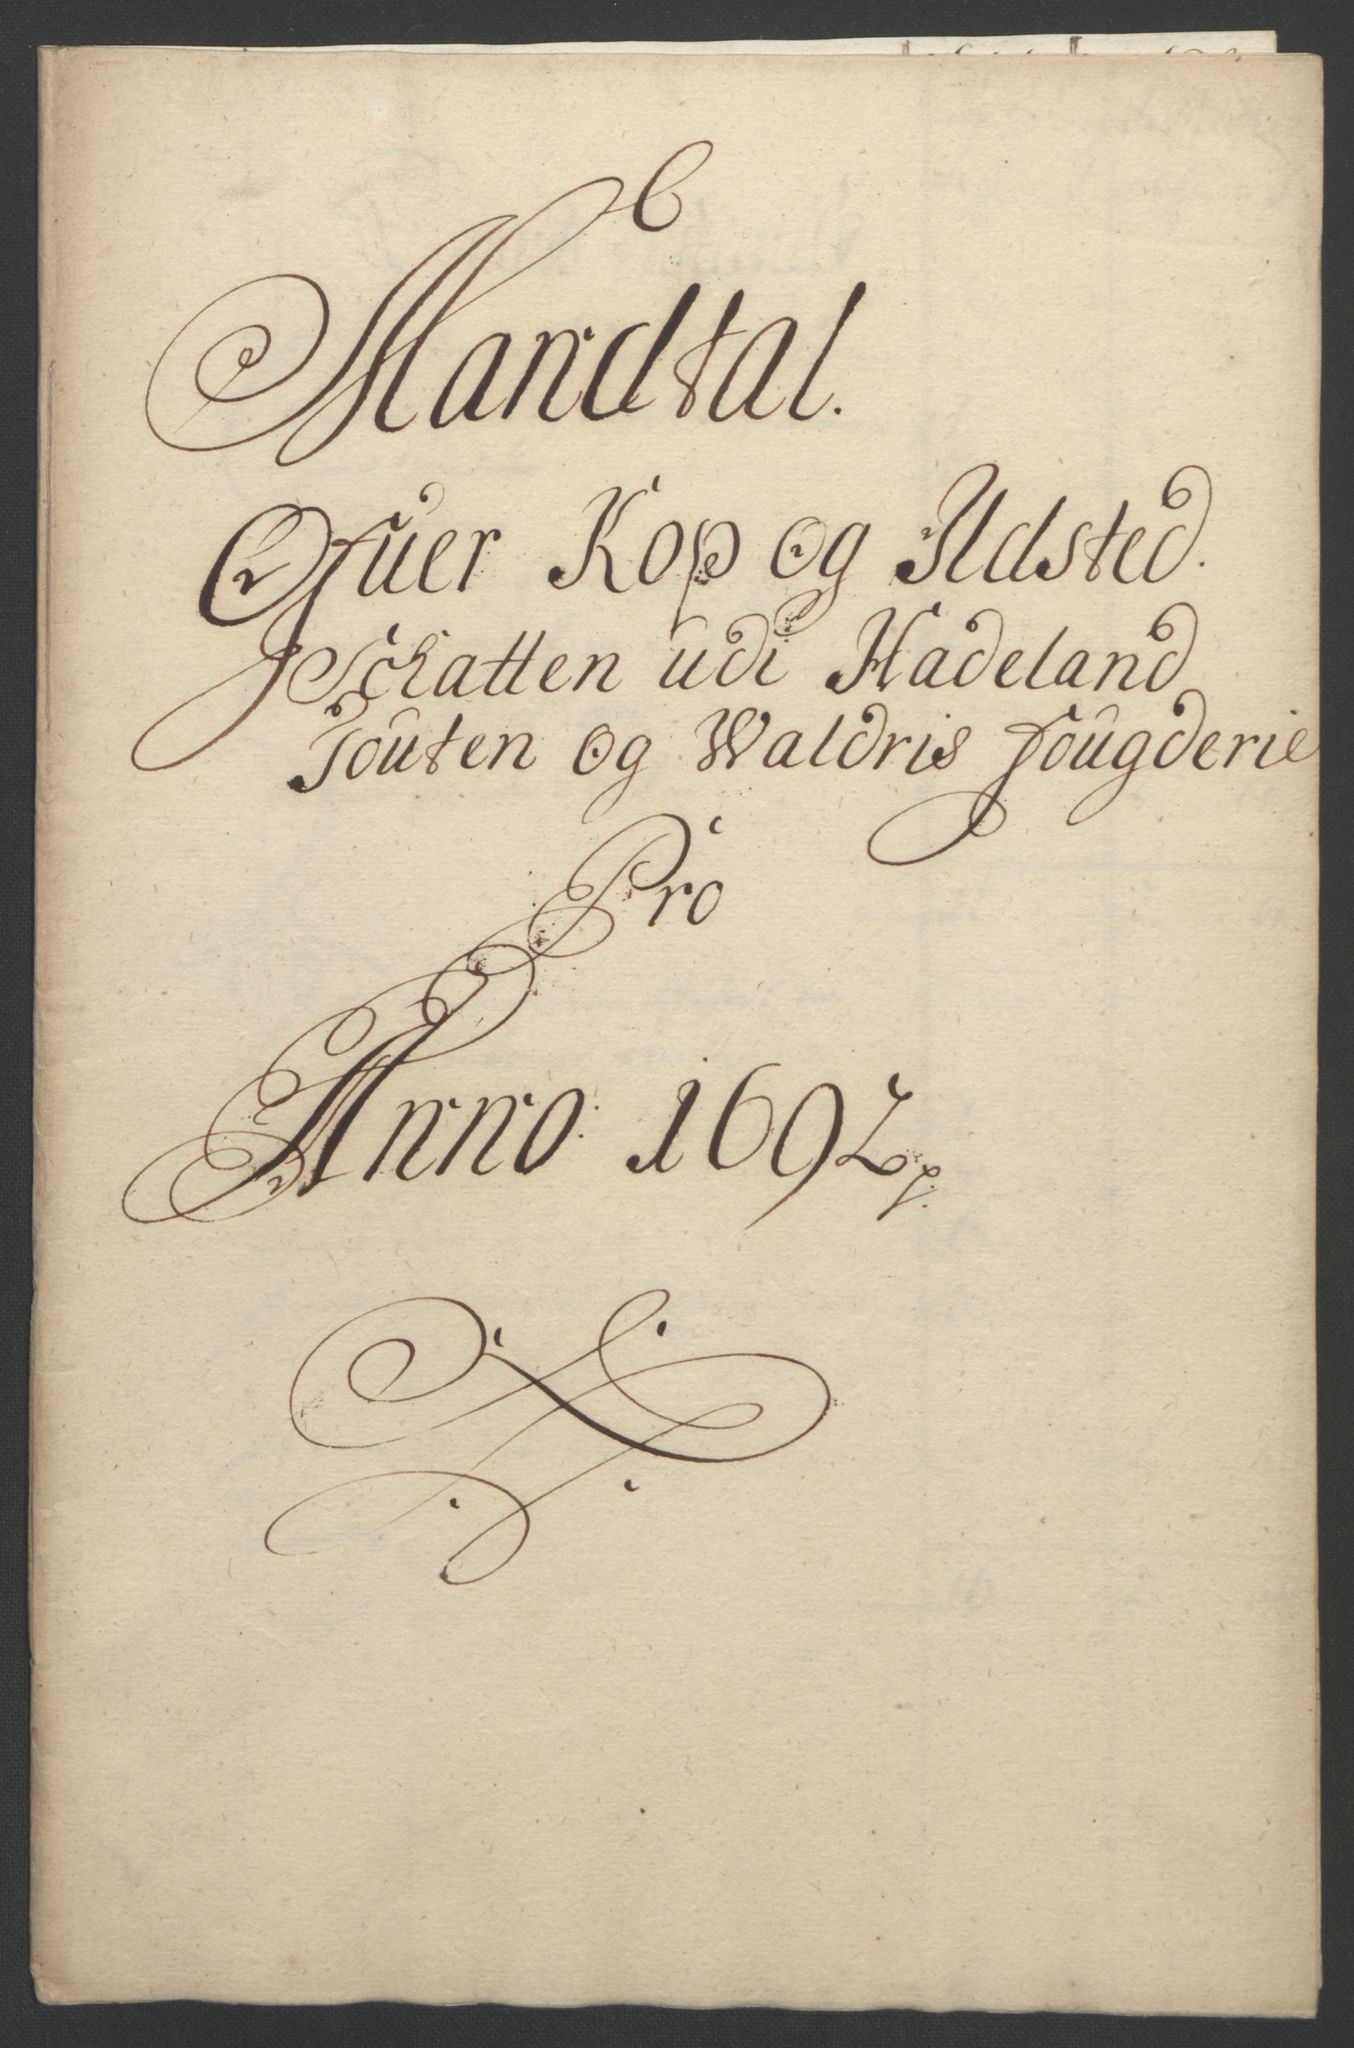 Mandtal.
Ofuer Kop og Ildsted.
Schatten udi Hadeland
Touten og Waldris fougderie
Pro
Anno 1692